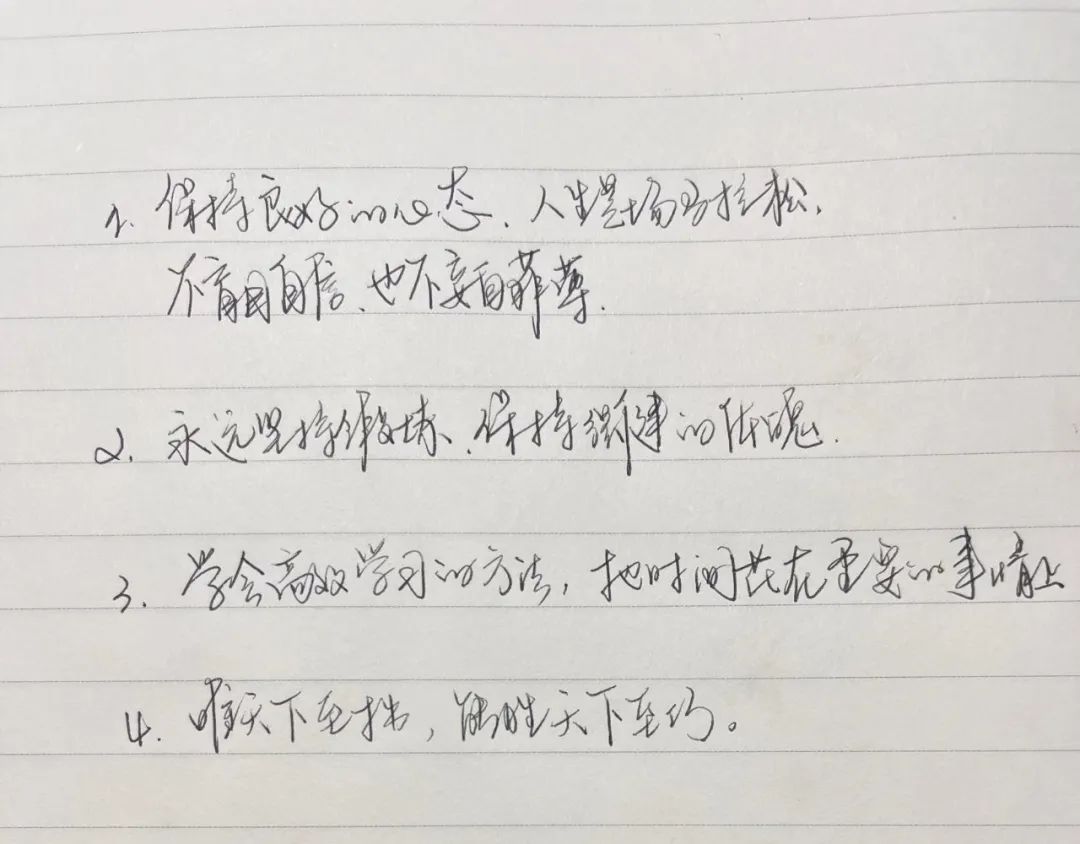 1. 保持良好的心态、人生是场马拉松,
不盲目自信、也不妄自菲薄.
2. 永远坚持锻炼、保持强健的体魄.
3. 学会高效学习的方法，把时间花在重要的事情上
4. 唯天下至拙，能胜天下至巧。